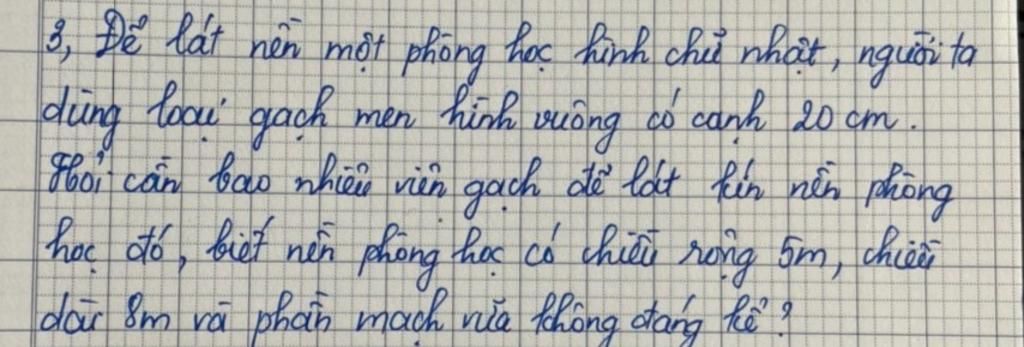 3, Để lát nền một phòng học hình chữ nhật, người ta
dùng loại gạch men hình vuông có cạnh 20 cm.
Hỏi cần bao nhiêu viên gạch để lát kín nền phòng
học đó, biết nền phòng học có chiều rộng 5m, chiều
dài 8m và phần mạch vữa không đáng kể?